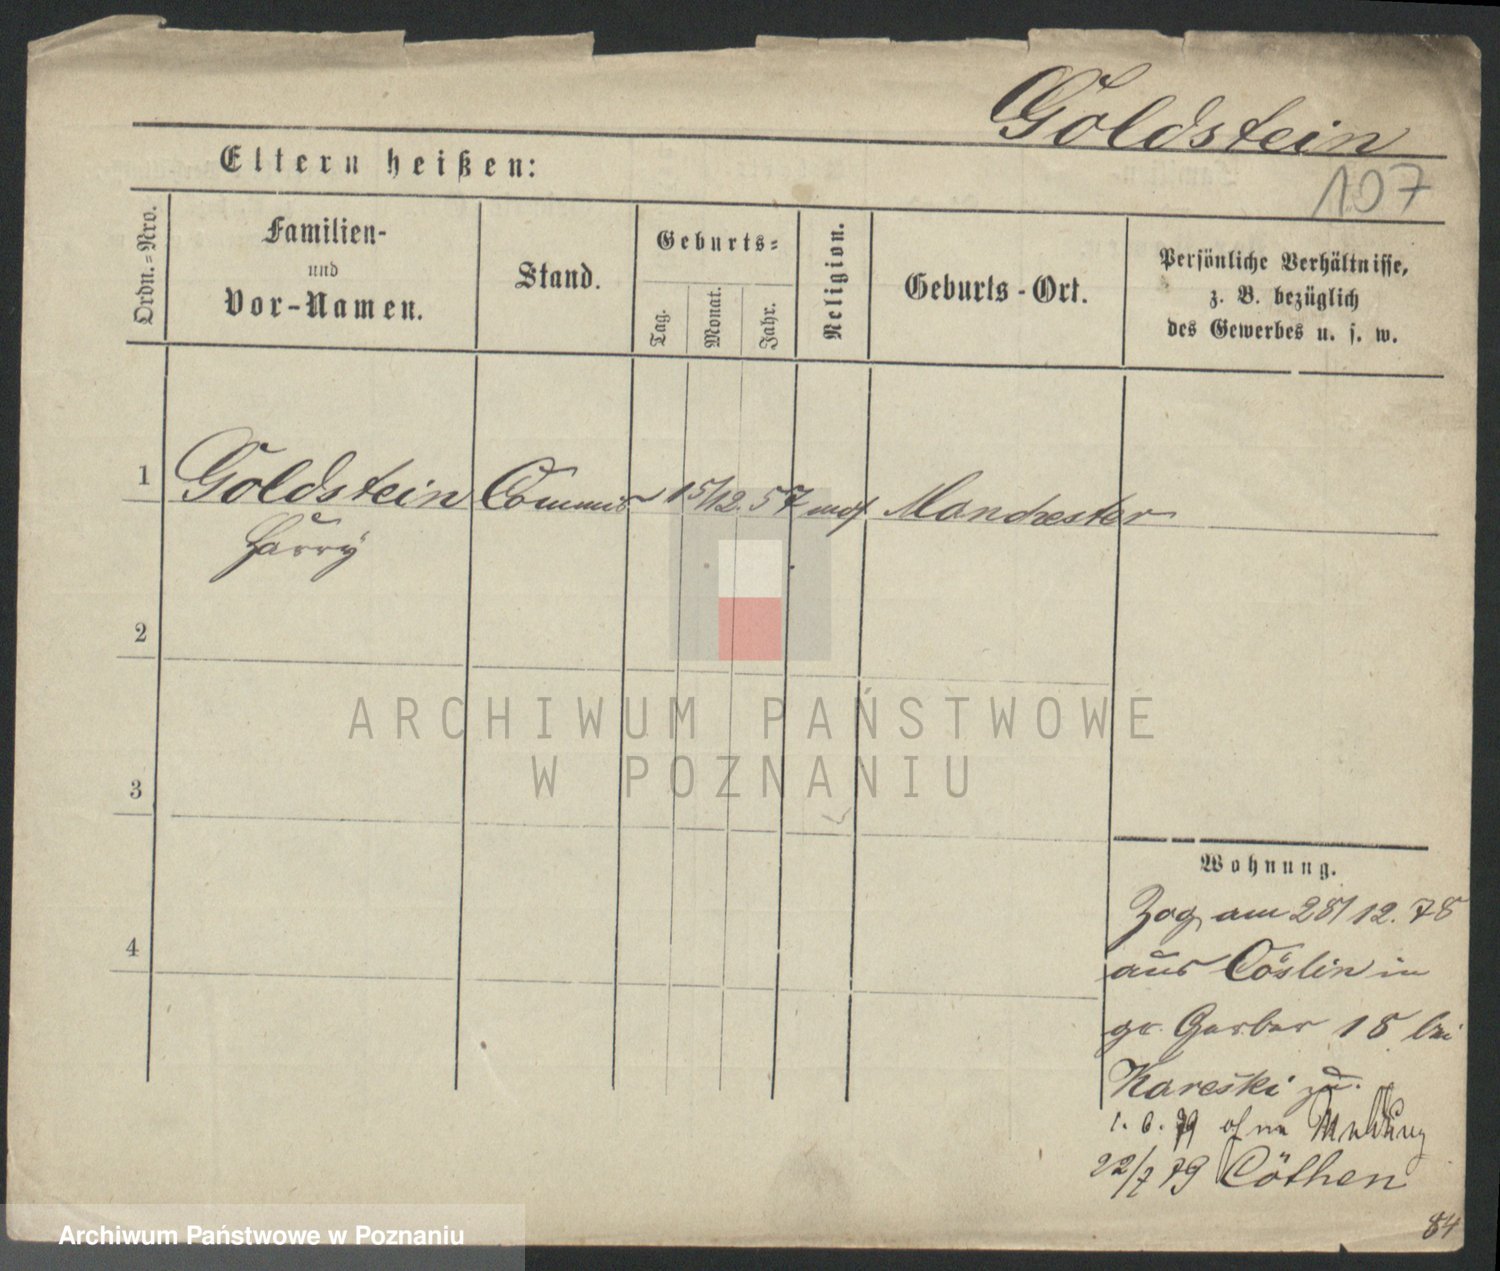 Goldstein
107
Eltern heißen:
Ordn.=Nro.
Familien-
und
Vor-Namen.
Stand.
Geburts=
Tag.
Monat.
Jahr.
Religion.
Geburts-Ort.
Persönliche Verhältnisse,
z. B. bezüglich
des Gewerbes u. s. w.
1
Goldstein Commis 15/12. 57 mos Manchester
Harry
2
3
4
ARCHIWUM PAŃSTWOWE
W POZNANIU
Wohnung.
Zog am 28/12. 78
aus Cöslin in
gr Gerber 18 bei
Kareski zu.
1. 6. 79 ohne Meldung
22/7 79 Cöthen
84
Archiwum Państwowe w Poznaniu